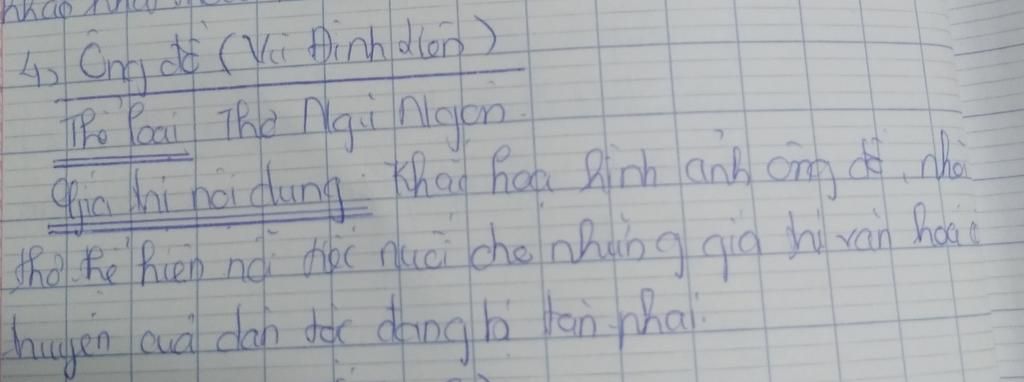 4, Ông đồ (Vũ Đình Liên)
Thể loại Thơ Ngũ Ngôn.
Giá trị nội dung: Khắc hoạ hình ảnh ông đồ, nhà
thơ thể hiện nỗi tiếc nuối cho những giá trị văn hoá cổ
truyền của dân tộc đang bị tàn phai.